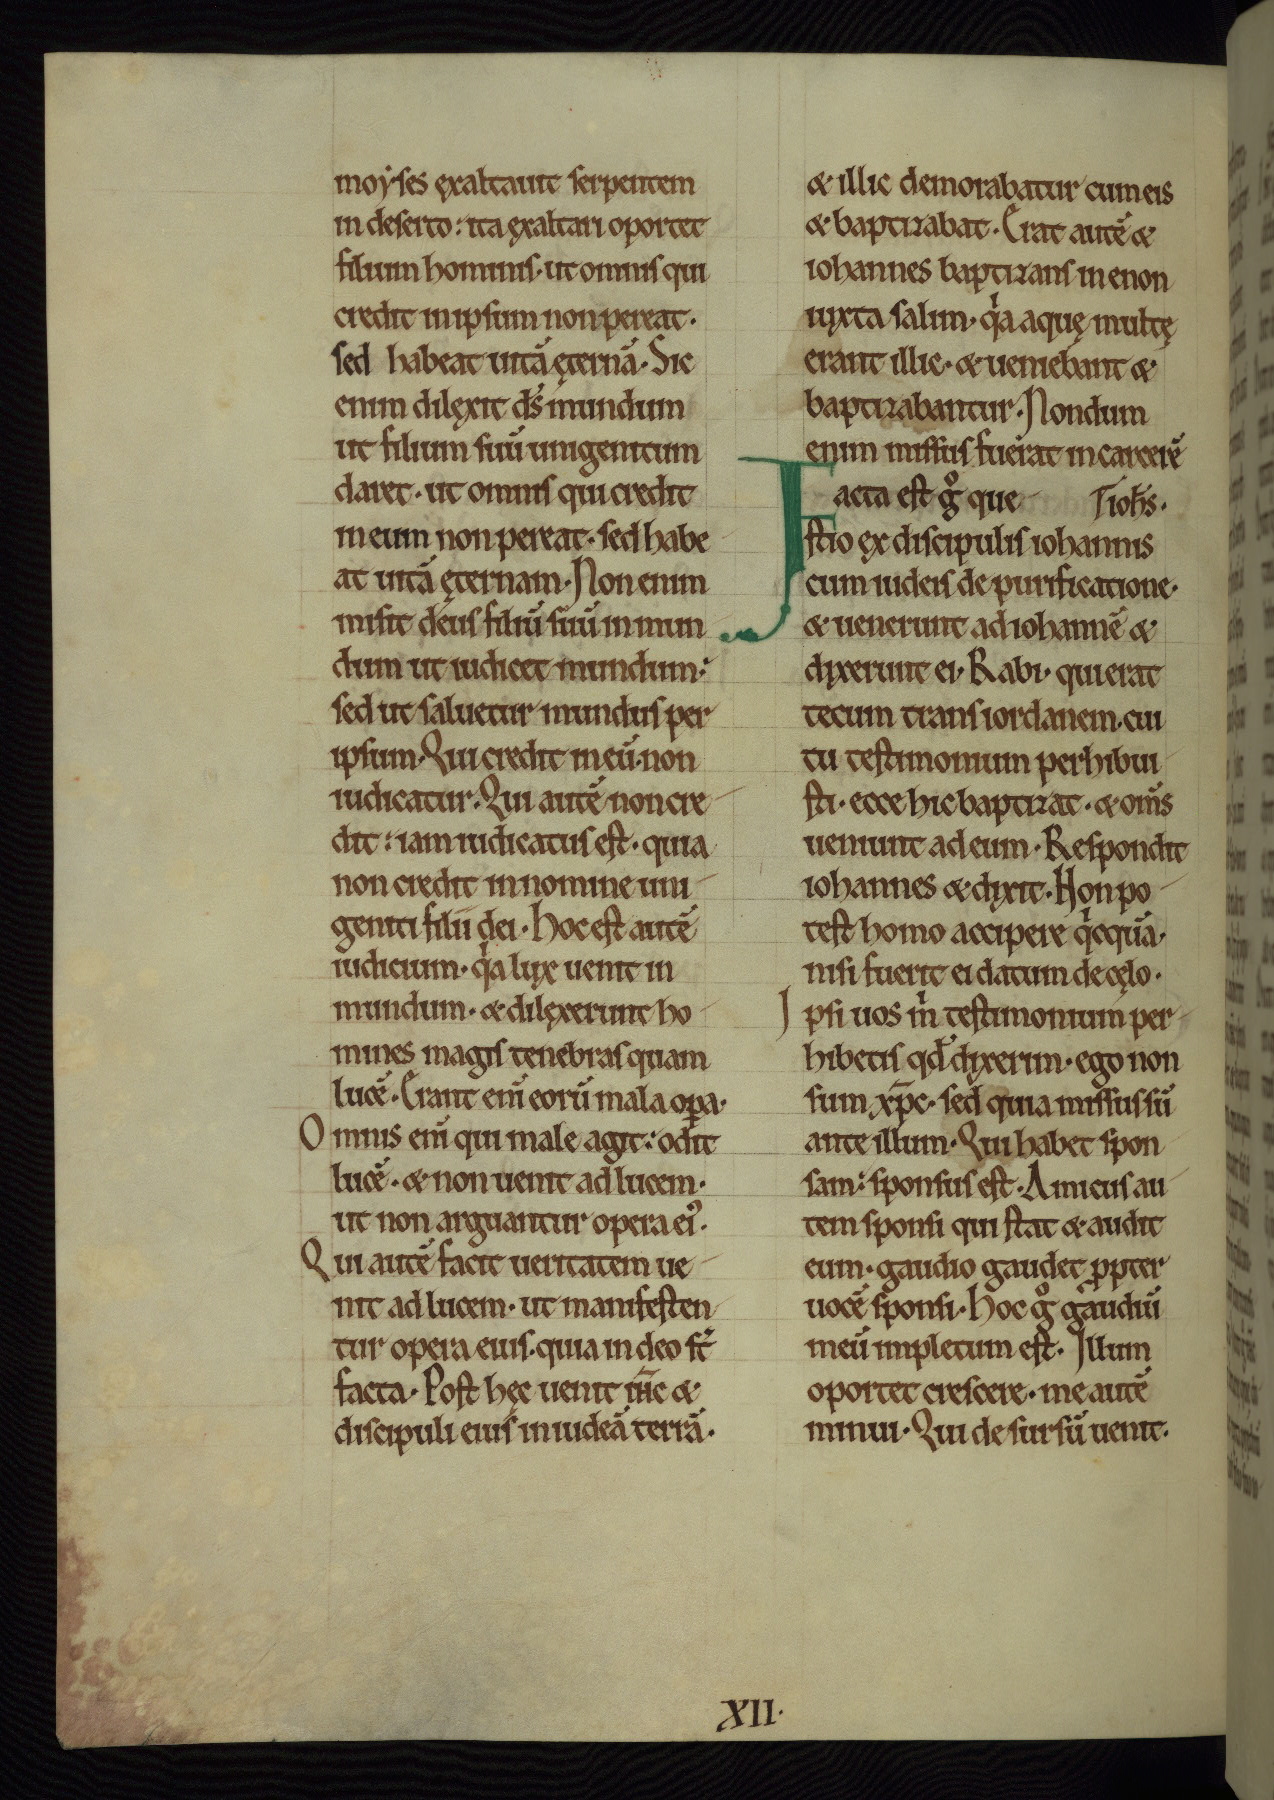 moyses ęxaltauit serpentem
in deserto: ita ęxaltari oportet
filium hominis· ut omnis qui
credit in ipsum non pereat·
sed habeat uitā ęternā· Sic
enim dilęxit ds̄ mundum
ut filium suū unigenitum
daret· ut omnis qui credit
in eum non pereat· sed habe
at uitā ęternam· Non enim
misit deus filiū suū in mun
dum ut iudicet mundum:
sed ut saluetur mundus per
ipsum· Qui credit in eū· non
iudicatur· Qui autē non cre
dit: iam iudicatus est· quia
non credit in nomine uni
geniti filii dei· Hoc est autē
iudicium· qͥa lux uenit in
mundum· & dilęxerunt ho
mines magis tenebras quam
lucē· Erant eni̅ eorū mala oꝑa·
Omnis eni̅ qui male agit: odit
lucē· & non uenit ad lucem·
ut non arguantur opera ei᾽·
Qui autē facit ueritatem ue
nit ad lucem· ut manifesten
tur opera eius· quia in deo st̄
facta· Post hęc uenit ihc̄ &
discipuli eius in iudeā terrā·
& illic demorabatur cum eis
& baptizabat· Erat autē &
iohannes baptizans in enon
iuxta salim· qͥa aquę multę
erant illic· & ueniebant &
baptizabantur· Nondum
enim missus fuerat in carcerē
Facta est gͦ que iohs̄·
stio ęx discipulis iohannis
cum iudeis de purificatione·
& uenerunt ad iohannē &
dixerunt ei· Rabi· qui erat
tecum trans iordanem· cui
tu testimonium perhibui
sti· ecce hic baptizat· & om̄s
ueniunt ad eum· Respondit
iohannes & dixit· Non po
test homo accipere qͥcquā·
nisi fuerit ei datum de cęlo·
Ipsi uos m̅ testimonium per
hibetis qd̄ dixerim· ego non
sum xp̄c· sed quia missus sū
ante illum· Qui habet spon
sam: sponsus est· Amicus au
tem sponsi qui stat & audit
eum· gaudio gaudet ꝓpter
uocē sponsi· Hoc gͦ gaudiū
meū impletum est· Illum
oportet crescere· me autē
minui· Qui de sursū uenit·
XII·